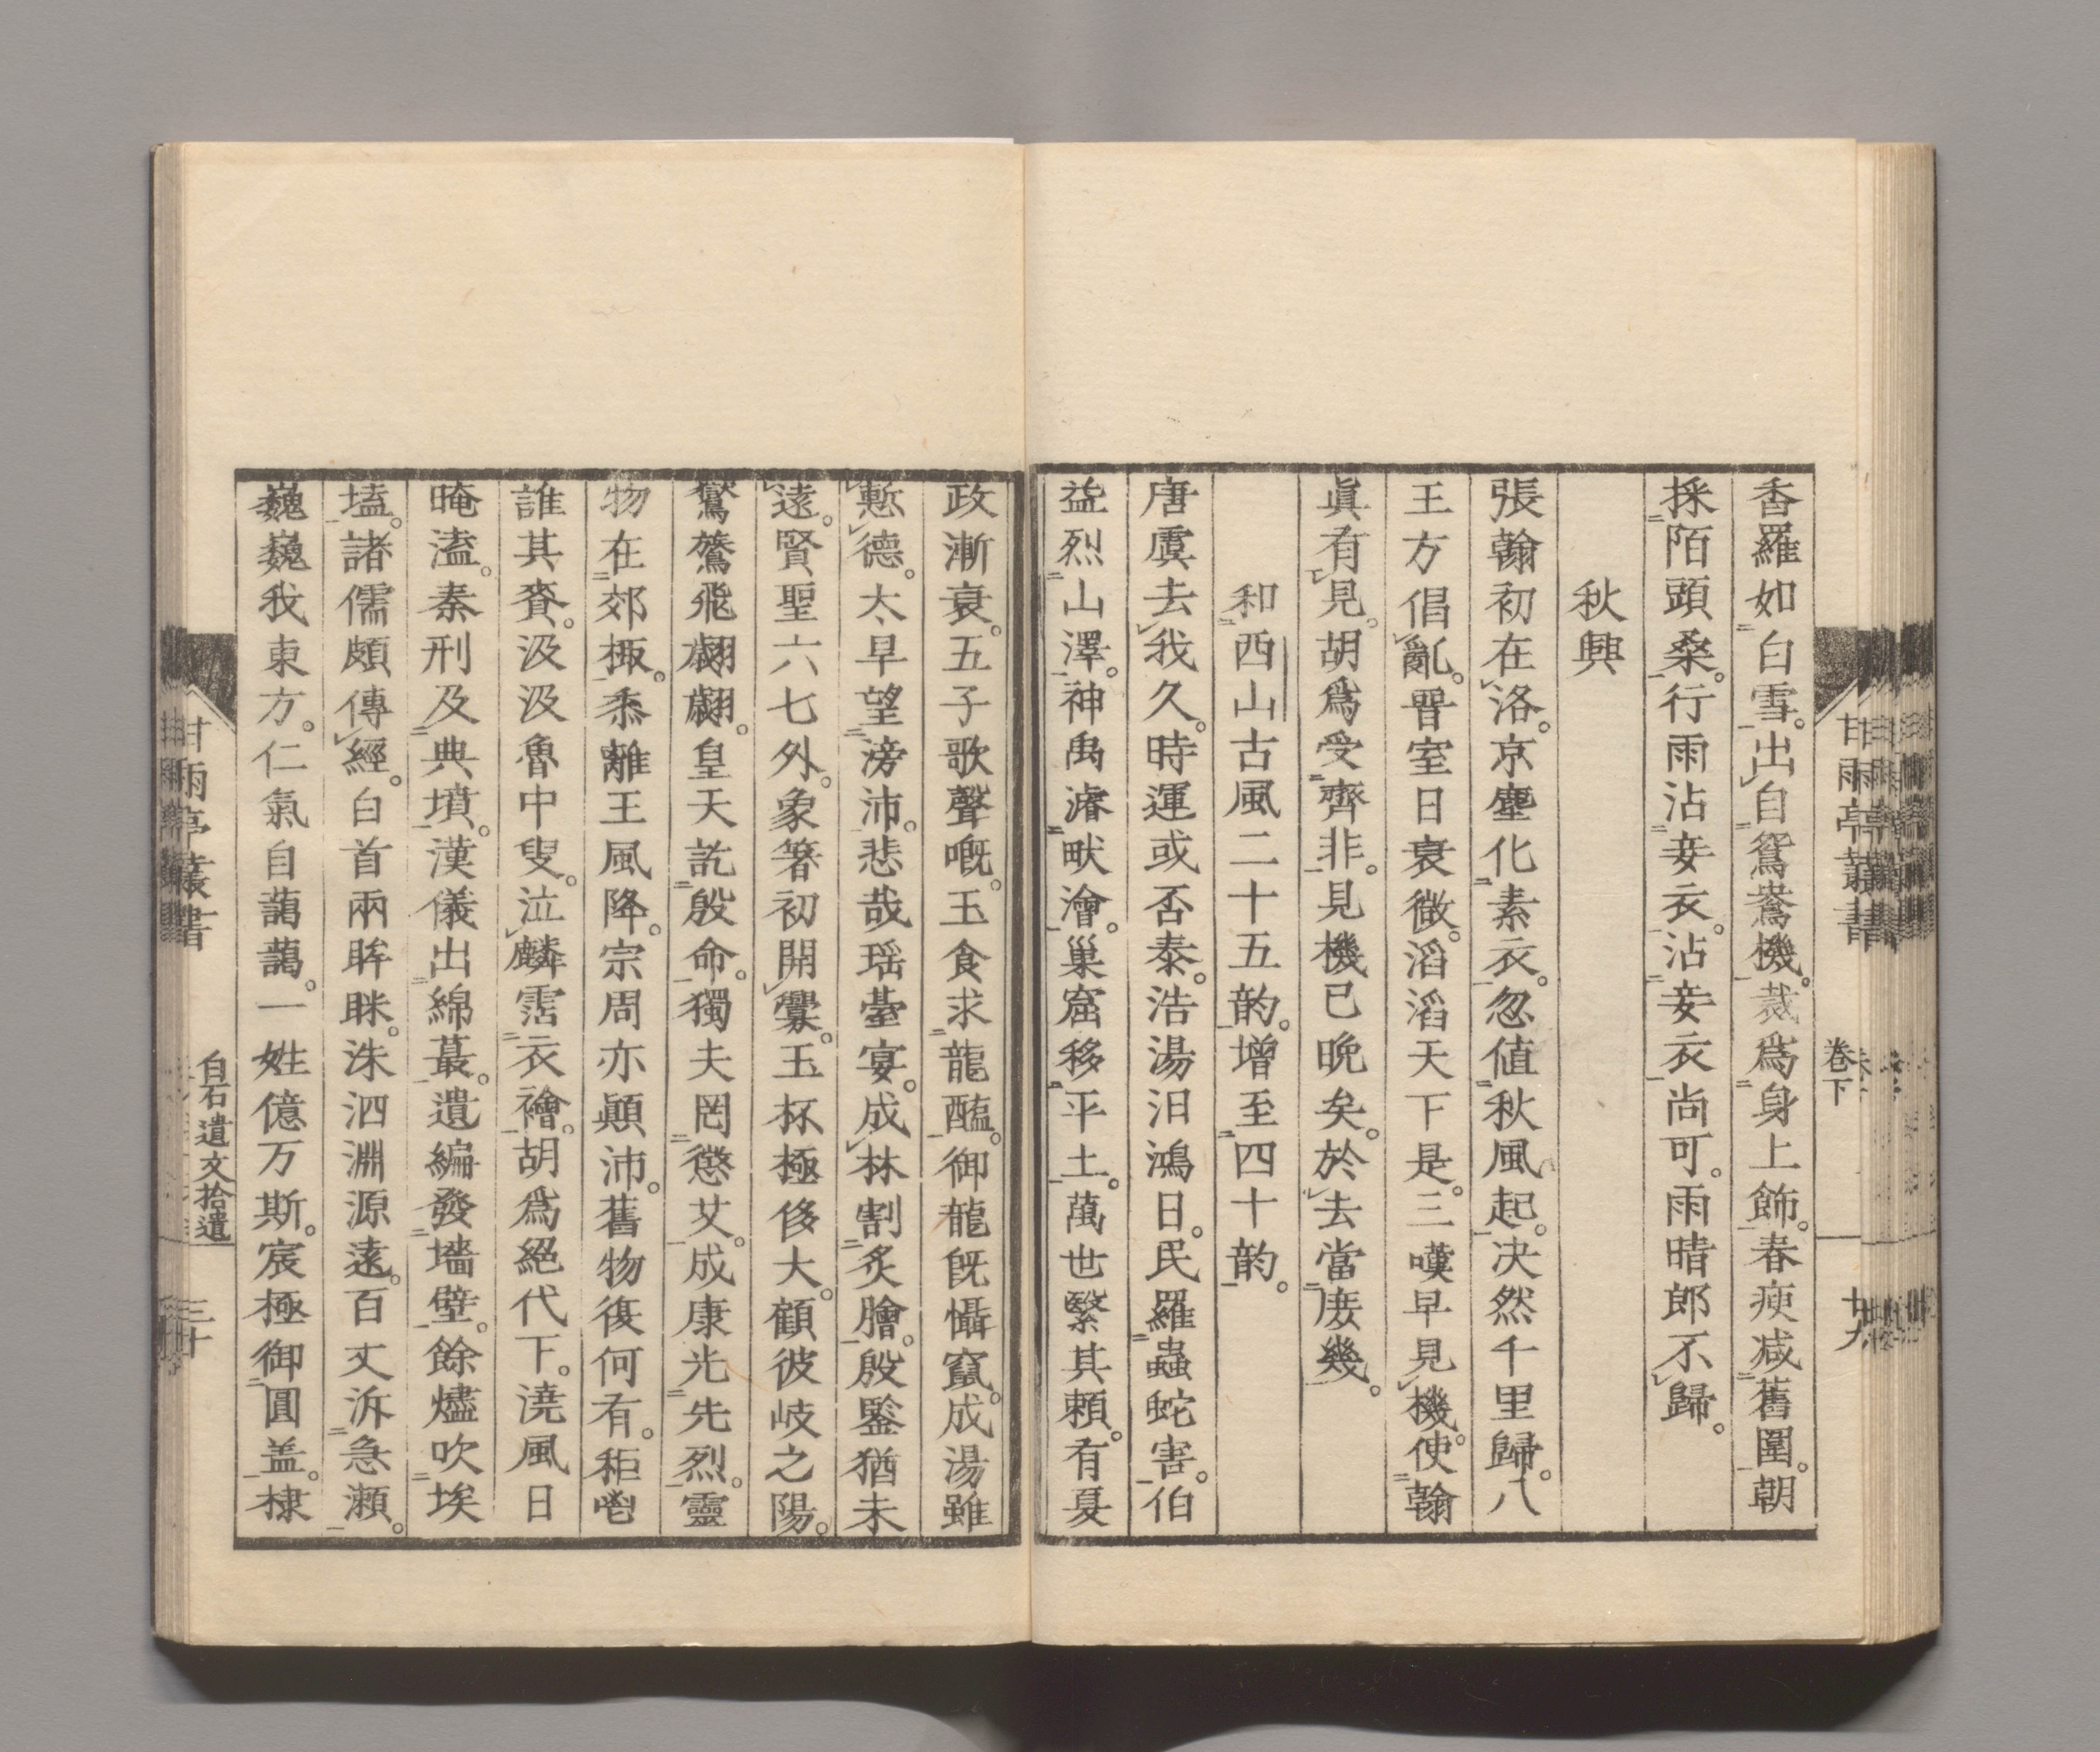 香羅如白雪。出自鴛鴦機。裁爲身上飾。春瘦减舊圍。朝
採陌頭桑。行雨沾妾衣。沾妾衣尚可。雨晴郎不歸。
秋興
張翰初在洛。京塵化素衣。忽値秋風起。决然千里歸。八
王方倡亂。晋室日衰微。滔滔天下是。三嘆早見機。使翰
眞有見。胡爲受齊非。見機已晩矣。於去當庻幾。
和西山古風二十五韵。増至四十韵。
唐虞去我久。時運或否泰。浩湯汨鴻日。民羅蟲蛇害。伯
益烈山澤。神禹濬畎澮。巢窟移平土。萬世繄其賴。有夏
甘雨亭叢書
卷下
廿九
政漸衰。五子歌聲嘅。玉食求龍醢。御龍旣懾竄。成湯雖
慙德。大旱望滂沛。悲哉瑶臺宴。成林割炙膾。殷鑒猶未
遠。賢聖六七外。象箸初開釁。玉杯極侈大。顧彼岐之陽。
鸑鷟飛翽翽。皇天訖殷命。獨夫罔懲艾。成康光先烈。靈
物在郊棷。黍離王風降。宗周亦顚沛。舊物復何有。秬鬯
誰其賚。汲汲魯中叟。泣麟霑衣襘。胡爲絕代下。澆風日
晻溘。秦刑及典墳。漢儀出綿蕞。遺編發墻壁。餘燼吹埃
壒。諸儒頗傳經。白首兩眸眯。洙泗淵源遠。百丈泝急瀬。
巍巍我東方。仁氣自藹藹。一姓億万斯。宸極御圓盖。棣
甘雨亭叢書
白石遺文拾遺
三十